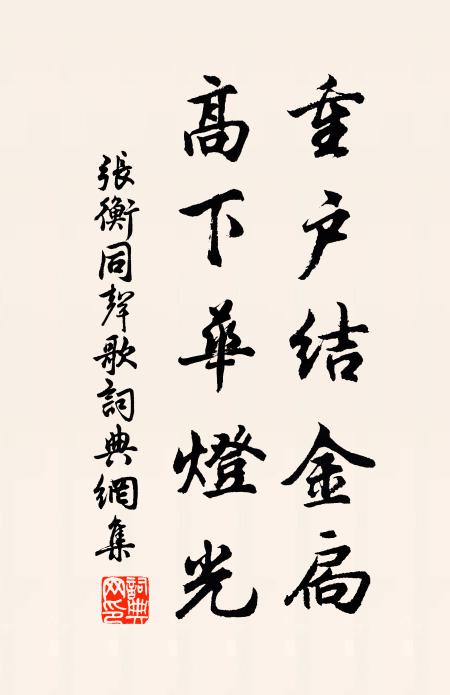 重戶結金扃
高下華燈光
張衡同聲歌詞典網集
詞典網印